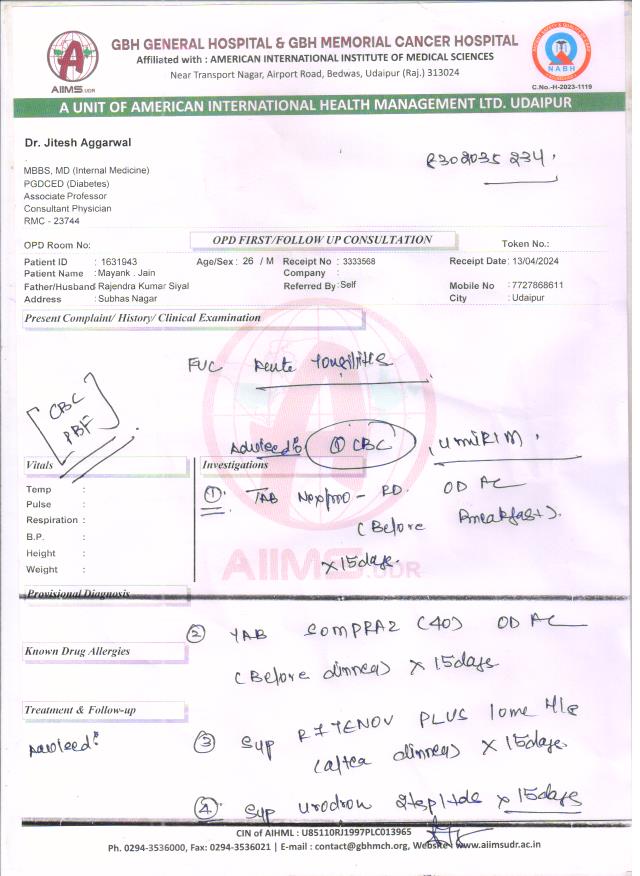 GBH GENERAL HOSPITAL & GBH MEMORIAL CANCER HOSPITAL
Affiliated with : AMERICAN INTERNATIONAL INSTITUTE OF MEDICAL SCIENCES
Near Transport Nagar, Airport Road, Bedwas, Udaipur (Raj.) 313024
AIIMS.UDR
NABH
C.No.-H-2023-1119
A UNIT OF AMERICAN INTERNATIONAL HEALTH MANAGEMENT LTD. UDAIPUR
Dr. Jitesh Aggarwal
MBBS, MD (Internal Medicine)
PGDCED (Diabetes)
Associate Professor
Consultant Physician
RMC - 23744
R302035234.
OPD Room No:
OPD FIRST/FOLLOW UP CONSULTATION
Token No.:
Patient ID : 1631943 Age/Sex : 26 / M Receipt No : 3333568 Receipt Date: 13/04/2024
Patient Name : Mayank . Jain Company :
Father/Husband Rajendra Kumar Siyal Referred By: Self Mobile No : 7727868611
Address : Subhas Nagar City : Udaipur
Present Complaint/ History/ Clinical Examination
FUC Acute
CBC
PBF
① CBC
Vitals
Investigations
Temp :
Pulse :
Respiration :
B.P. :
Height :
Weight :
① TAB Nexpro - RD. OD AC
(Before Breakfast).
x 15 days.
AIIMS.UDR
Provisional Diagnosis
② TAB SOMPRAZ (40) OD AC
(Before dinner) x 15 days
Known Drug Allergies
Treatment & Follow-up
③ Syp PLUS
(after dinner) x 15 days
④ Syp x 15 days
CIN of AIHML : U85110RJ1997PLC013965
Ph. 0294-3536000, Fax: 0294-3536021 | E-mail : contact@gbhmch.org, Website : www.aiimsudr.ac.in